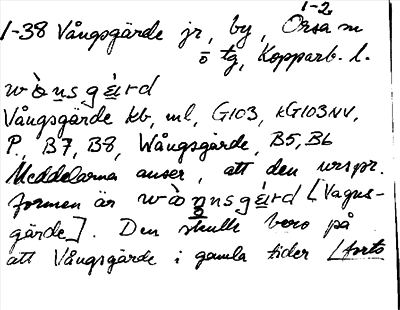 1-2
1-38 Vångsgärde jr, by, Orsa sn
ö tg, Kopparb. l.
wå̀nsgä́rd
Vångsgärde kb, ml, G103, kG103NV,
P, B7, B8, Wångsgärde, B5, B6
Meddelarna anser, att den urspr.
formen är wå̀nnsgä́rd [Vagns-
gärde]. Den skulle bero på
att Vångsgärde i gamla tider [forts